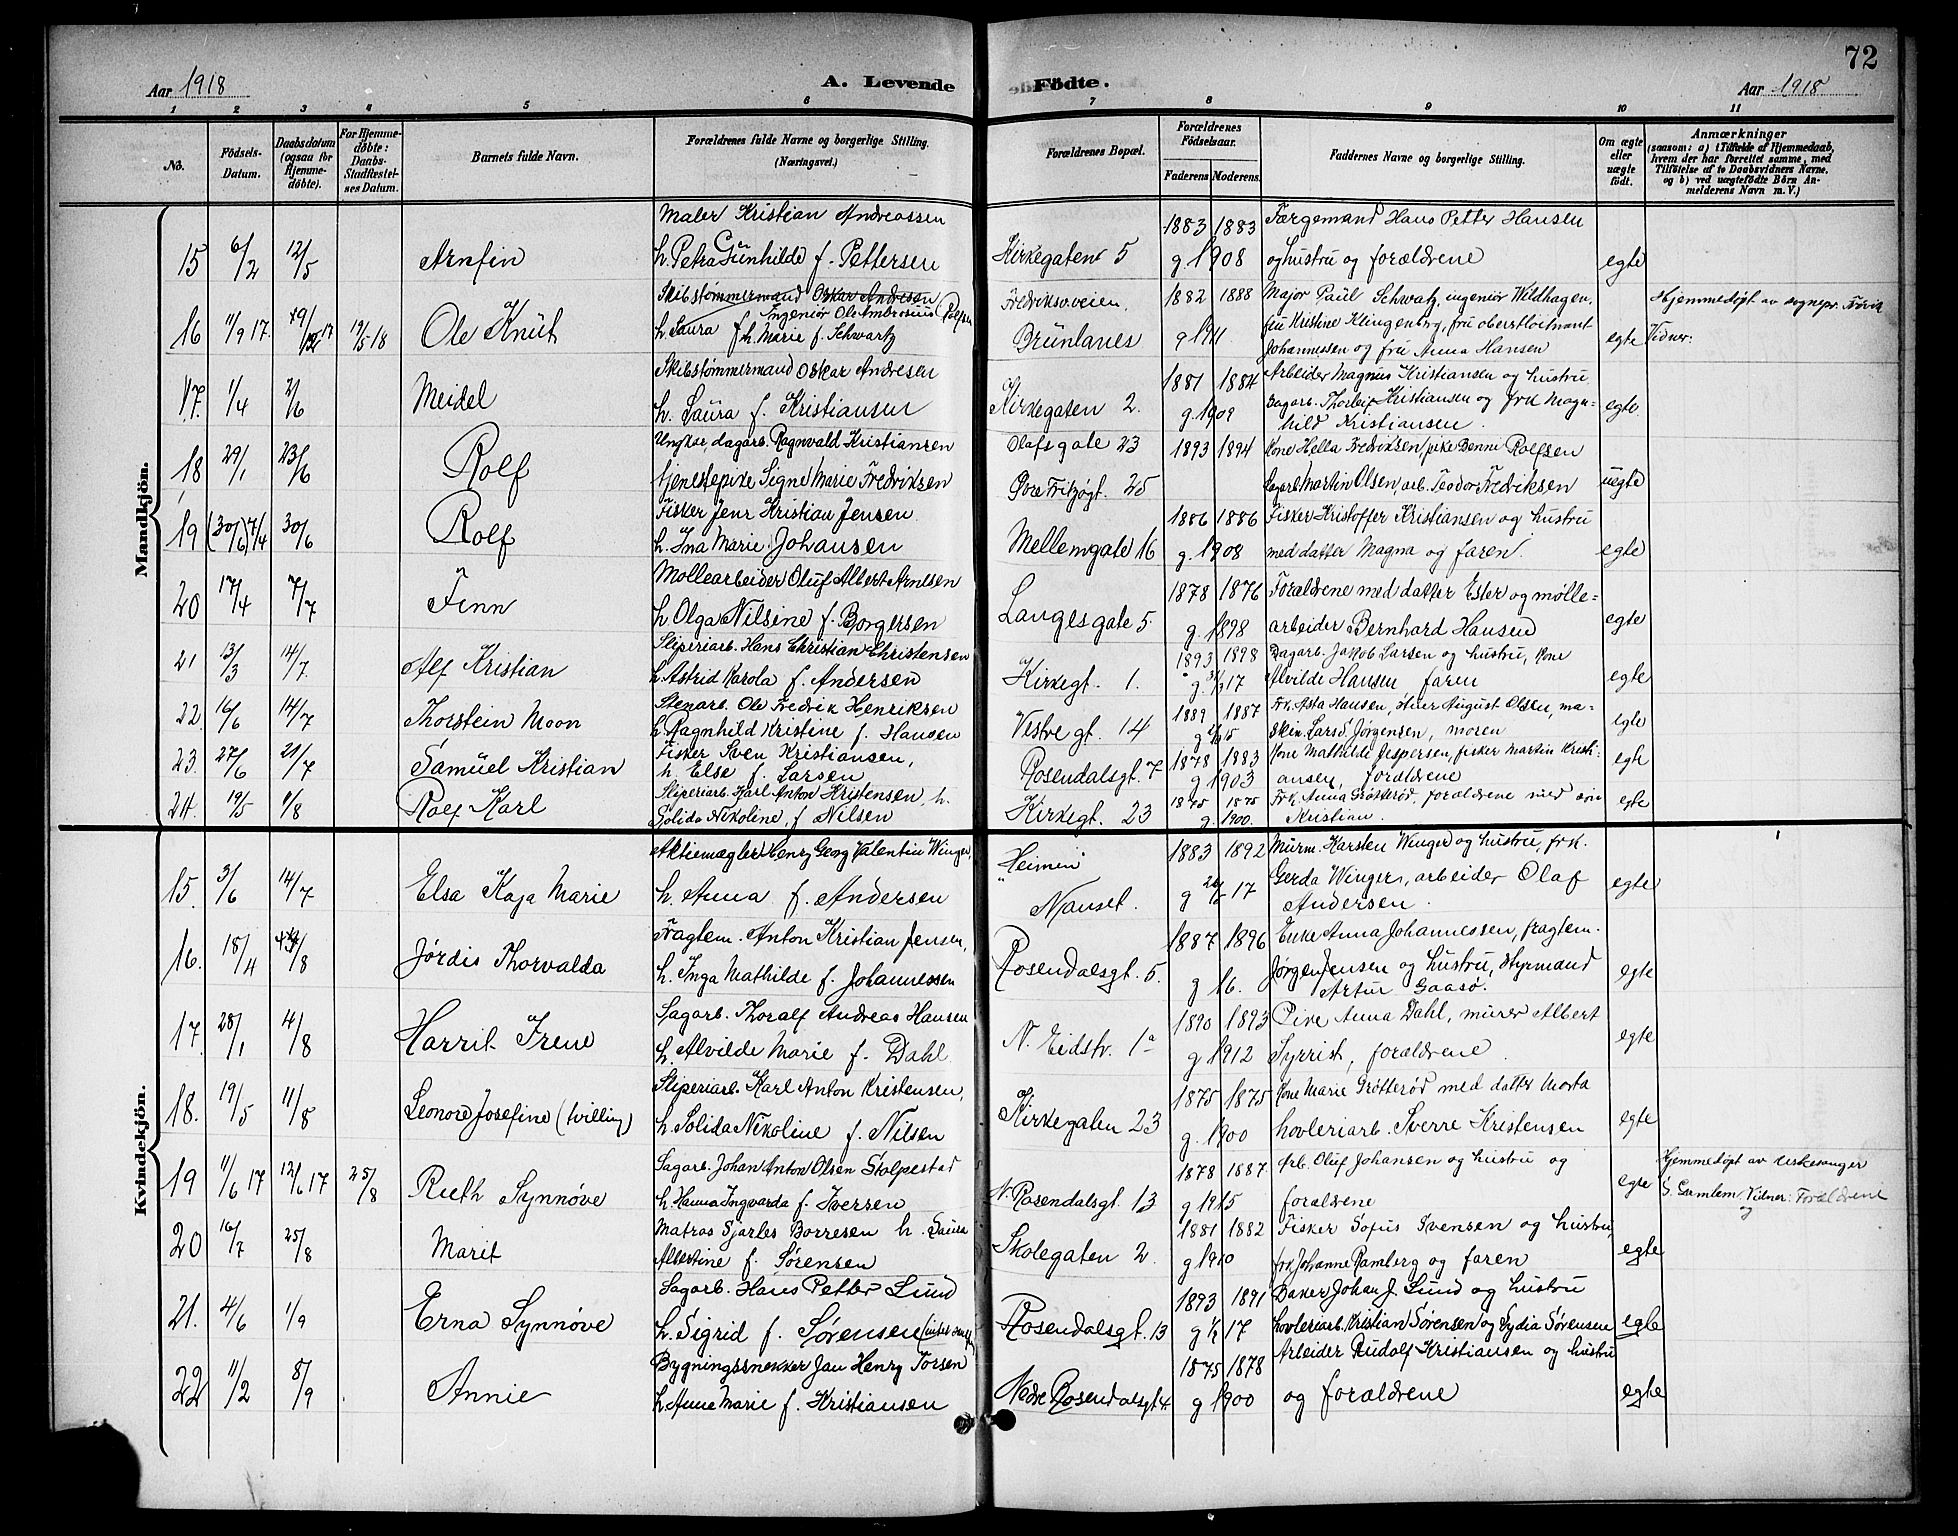 72
Aar 1918
A. Levende Födte.
Aar 1918
1 2 3 4 5 6 7 8 9 10 11
No.
Födsels-Datum.
Daabsdatum (ogsaa for Hjemmedöbte).
For Hjemmedöbte: Daabs-Stadfæstelses Datum.
Barnets fulde Navn.
Forældrenes fulde Navne og borgerlige Stilling. (Næringsvei.)
Forældrenes Bopæl.
Forældrenes Födselsaar.
Faderens. Moderens.
Faddernes Navne og borgerlige Stilling.
Om ægte eller uægte födt.
Anmærkninger (saasom: a) i Tilfælde af Hjemmedaab, hvem der har forrettet samme, med Tilföielse af to Daabsvidners Navne. og b) ved uægtefödte Börn Anmelderens Navn m. V.)
Mandkjön.
Maler Kristian Andreassen 1883 1883 Færgemand Hans Petter Hansen
15 6/2 12/5 Arnfin h. Petra Gunhilde f. Pettersen Kirkegaten 5 g. 1908 og hustru og forældrene egte
Skibstømmermand Oskar Andresen Fredriksv.veien 1882 1888 Major Paul Schwartz, ingeniør Wildhagen,
Ingeniør Ole Ambrosius Rolfsen Hjemmedøpt av sognepr.
16 11/9 17. 19/5 18 Ole Knut h. Laura f. h. Marie f. Schwartz Brunlanes g 1911 fru Kristine Klingenberg, fru oberstløitnant egte Vidner:
Johannessen og fru Anna Hansen
Skibstømmermand Oskar Andresen 1881 1884 Arbeider Magnus Kristiansen og hustru,
17. 1/4 2/6 Meidel h. Laura f. Kristiansen Kirkegaten 2. g. 1909 Dagarb. Thorleif Kristiansen og frk Magnhild Kristiansen. egte
Ungkar, dagarb. Ragnvald Kristiansen Olafsgate 23 1893 1894 Kone Hella Fredriksen, pike Benni Rolfsen
18 29/1 23/6 Rolf tjenestepike Signe Marie Fredriksen Øvre Fritzøgt. 25 Dagarb Martin Olsen, arb. Teodor Fredriksen uegte
Fisker Jens Kristian Jensen 1886 1886 Fisker Kristoffer Kristiansen og hustru
19 (30/6) 7/4 30/6 Rolf h. Ina Marie Johansen Mellemgate 16 g. 1908 med datter Magna og faren. egte
Møllearbeider Oluf Albert Arnesen 1878 1876 Forældrene med datter Ester og mølle=
20 17/4 7/7 Finn h. Olga Nilsine f. Borgersen Langesgate 5 g. 1898 arbeider Bernhard Hansen egte
Sliperiarb. Hans Christian Christensen 1893 1898 Dagarb. Jakob Larsen og hustru, Kone
21 13/3 14/7. Alf Kristian h. Astrid Karola f. Andersen Kirkegt. 1. 17 Alvilde Hansen faren egte
Stenarb. Ole Fredrik Henriksen 1889 1887 Frk. Asta Hansen, August Olsen, ma-
22. 16/6 14/7 Thorstein Moon h. Ragnhild Kristine f. Hansen Vestre gt. 14 skin. Lars S. Jørgensen, moren egte
Fisker Sven Kristiansen, 1878 1883 Kone Mathilde Jespersen, fisker Martin Kristi-
23. 27/6 21/7 Samuel Kristian h. Else f. Larsen Rosendalsgt. 7 g 1903 ansen, forældrene egte
Sliperiarb. Karl Anton Kristensen, h. 1875 1875 Frk. Anna Grøtterød, forældrene med søn
24. 19/5 9/8 Rolf Karl Solida Nikoline, f Nilsen Kirkegt. 23 g. 1900. Kristian. egte
Kvindekjön.
Aktiemægler Henry Georg Valentin Winger, "Heimen" 1883 1892 Murm. Karsten Winger og hustru, frk.
15. 3/6 14/7 Elsa Kaja Marie h. Anna f. Andersen Nanset. g 17 Gerda Winger, arbeider Olaf Andersen. egte
Fragtem. Anton Kristian Jensen, 1887 1896 Enke Anna Johannessen, fragtem.
16. 18/4 4/8 Jørdis Thorvalda h. Inga Mathilde f. Johannessen Rosendalsgt. 5. g 16. Jørgen Jensen og hustru, styrmand Artur Gaasø. egte
Sagarb. Thoralf Andreas Hansen 1890 1893 Pike Anna Dahl, murer Albert
17. 28/1 4/8 Harrit Irene h. Alvilde Marie f. Dahl N. Eidstv. 1a g 1912 Syrrist, forældrene. egte
Sliperiarb. Karl Anton Kristensen, 1875 1875 Kone Marie Grøtterød med datter Marta
18. 19/5 11/8 Leonore Josefine (tvilling) h. Solida Nikoline f. Nilsen Kirkegaten 23 g. 1900 høvleriarb. Sverre Kristensen egte
Sagarb. Johan Anton Olsen Stolpestad 1878 1887 Arb. Oluf Johansen og hustru og Hjemmedøpt av kirkesanger
19 11/6 17 12/6 17 25/8 Ruth Synnøve h. Hanna Ingvarda f. Iversen N. Rosendalsgt. 13 g 1915 forældrene egte S. Gamlem. Vidner: Forældrene og
Matros Sjarles Borresen h. Laura 1881 1882 Fisker Sofus Svensen og hustru,
20 16/7 25/8 Marit Albertine f. Sørensen Skolegaten 2. g 1910 frk Johanne Ramberg og faren egte
Sagarb. Hans Petter Lund 1893 1891 Baker Johan J. Lund og hustru
21. 4/6 1/9 Erna Synnøve h. Sigrid f. Sørensen Rosendalsgt. 13 g 1/2 17 høvleriarb. Kristian Sørensen og Lydia Sørensen egte
Bygningssnekker Jan Henry Torsen 1875 1878 Arbeider Rudolf Kristiansen og hustru
22 11/2 8/9 Annie h. Anne Marie f. Kristiansen Nedre Rosendalsgt 4. g 1900 og forældrene egte